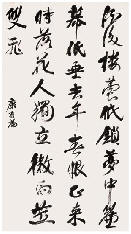 後樓臺低鎖夢中簾
幕低垂去年春恨却來
時落花人獨立微雨燕
雙飛
康有為